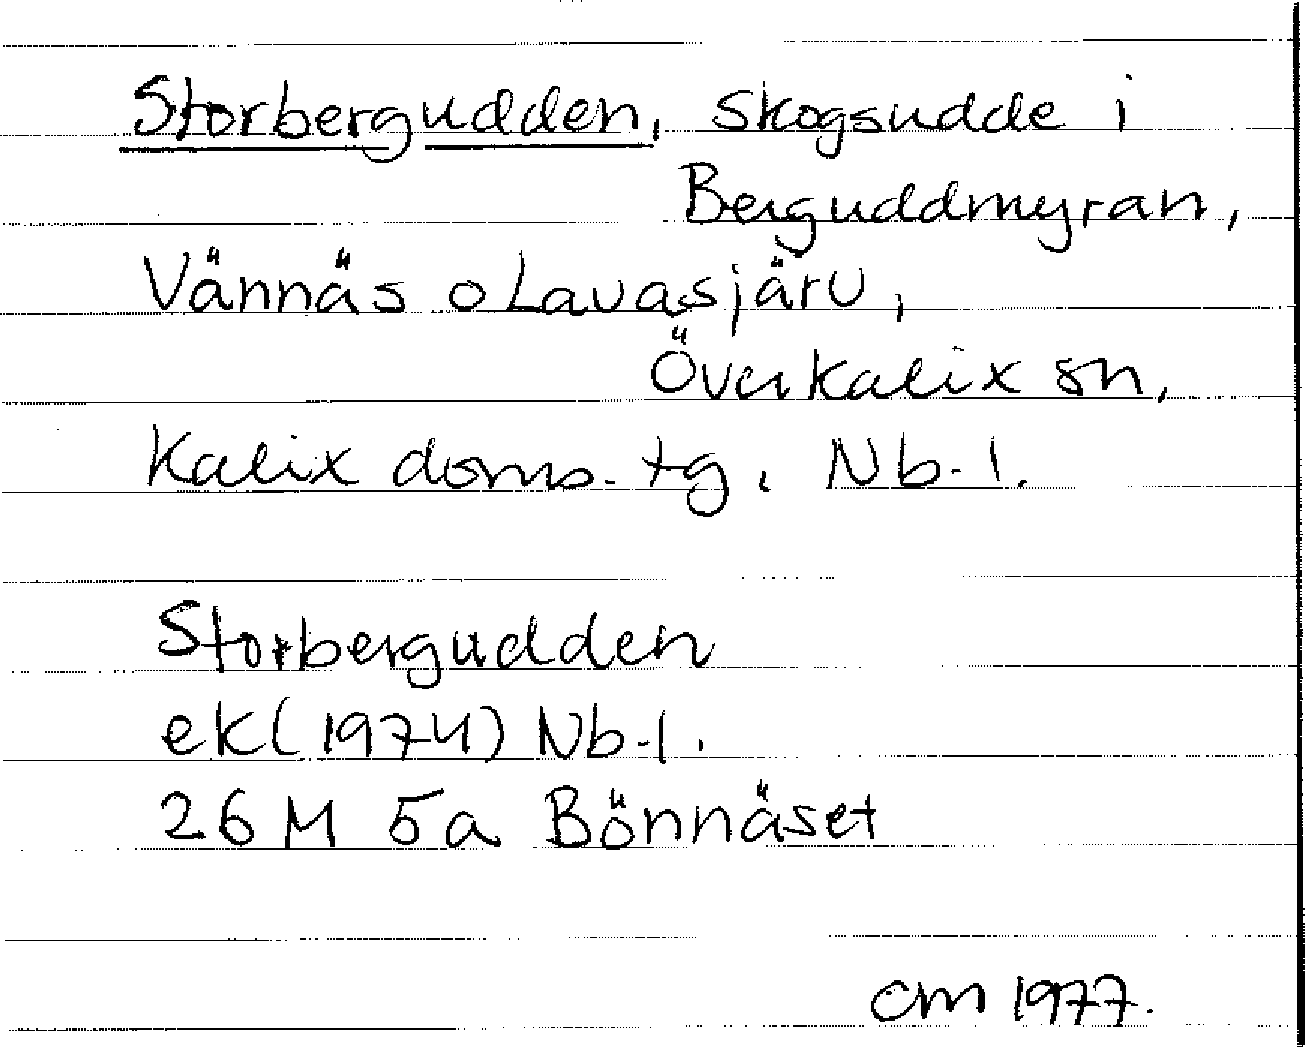 Storbergudden, skogsudde i
Berguddmyran,
Vännäs o Lavasjärv,
Överkalix sn,
Kalix doms. tg. Nb. l.
Storbergudden
ek (1974) Nb. l.
26 M 5a Bönnäset
CM 1977.